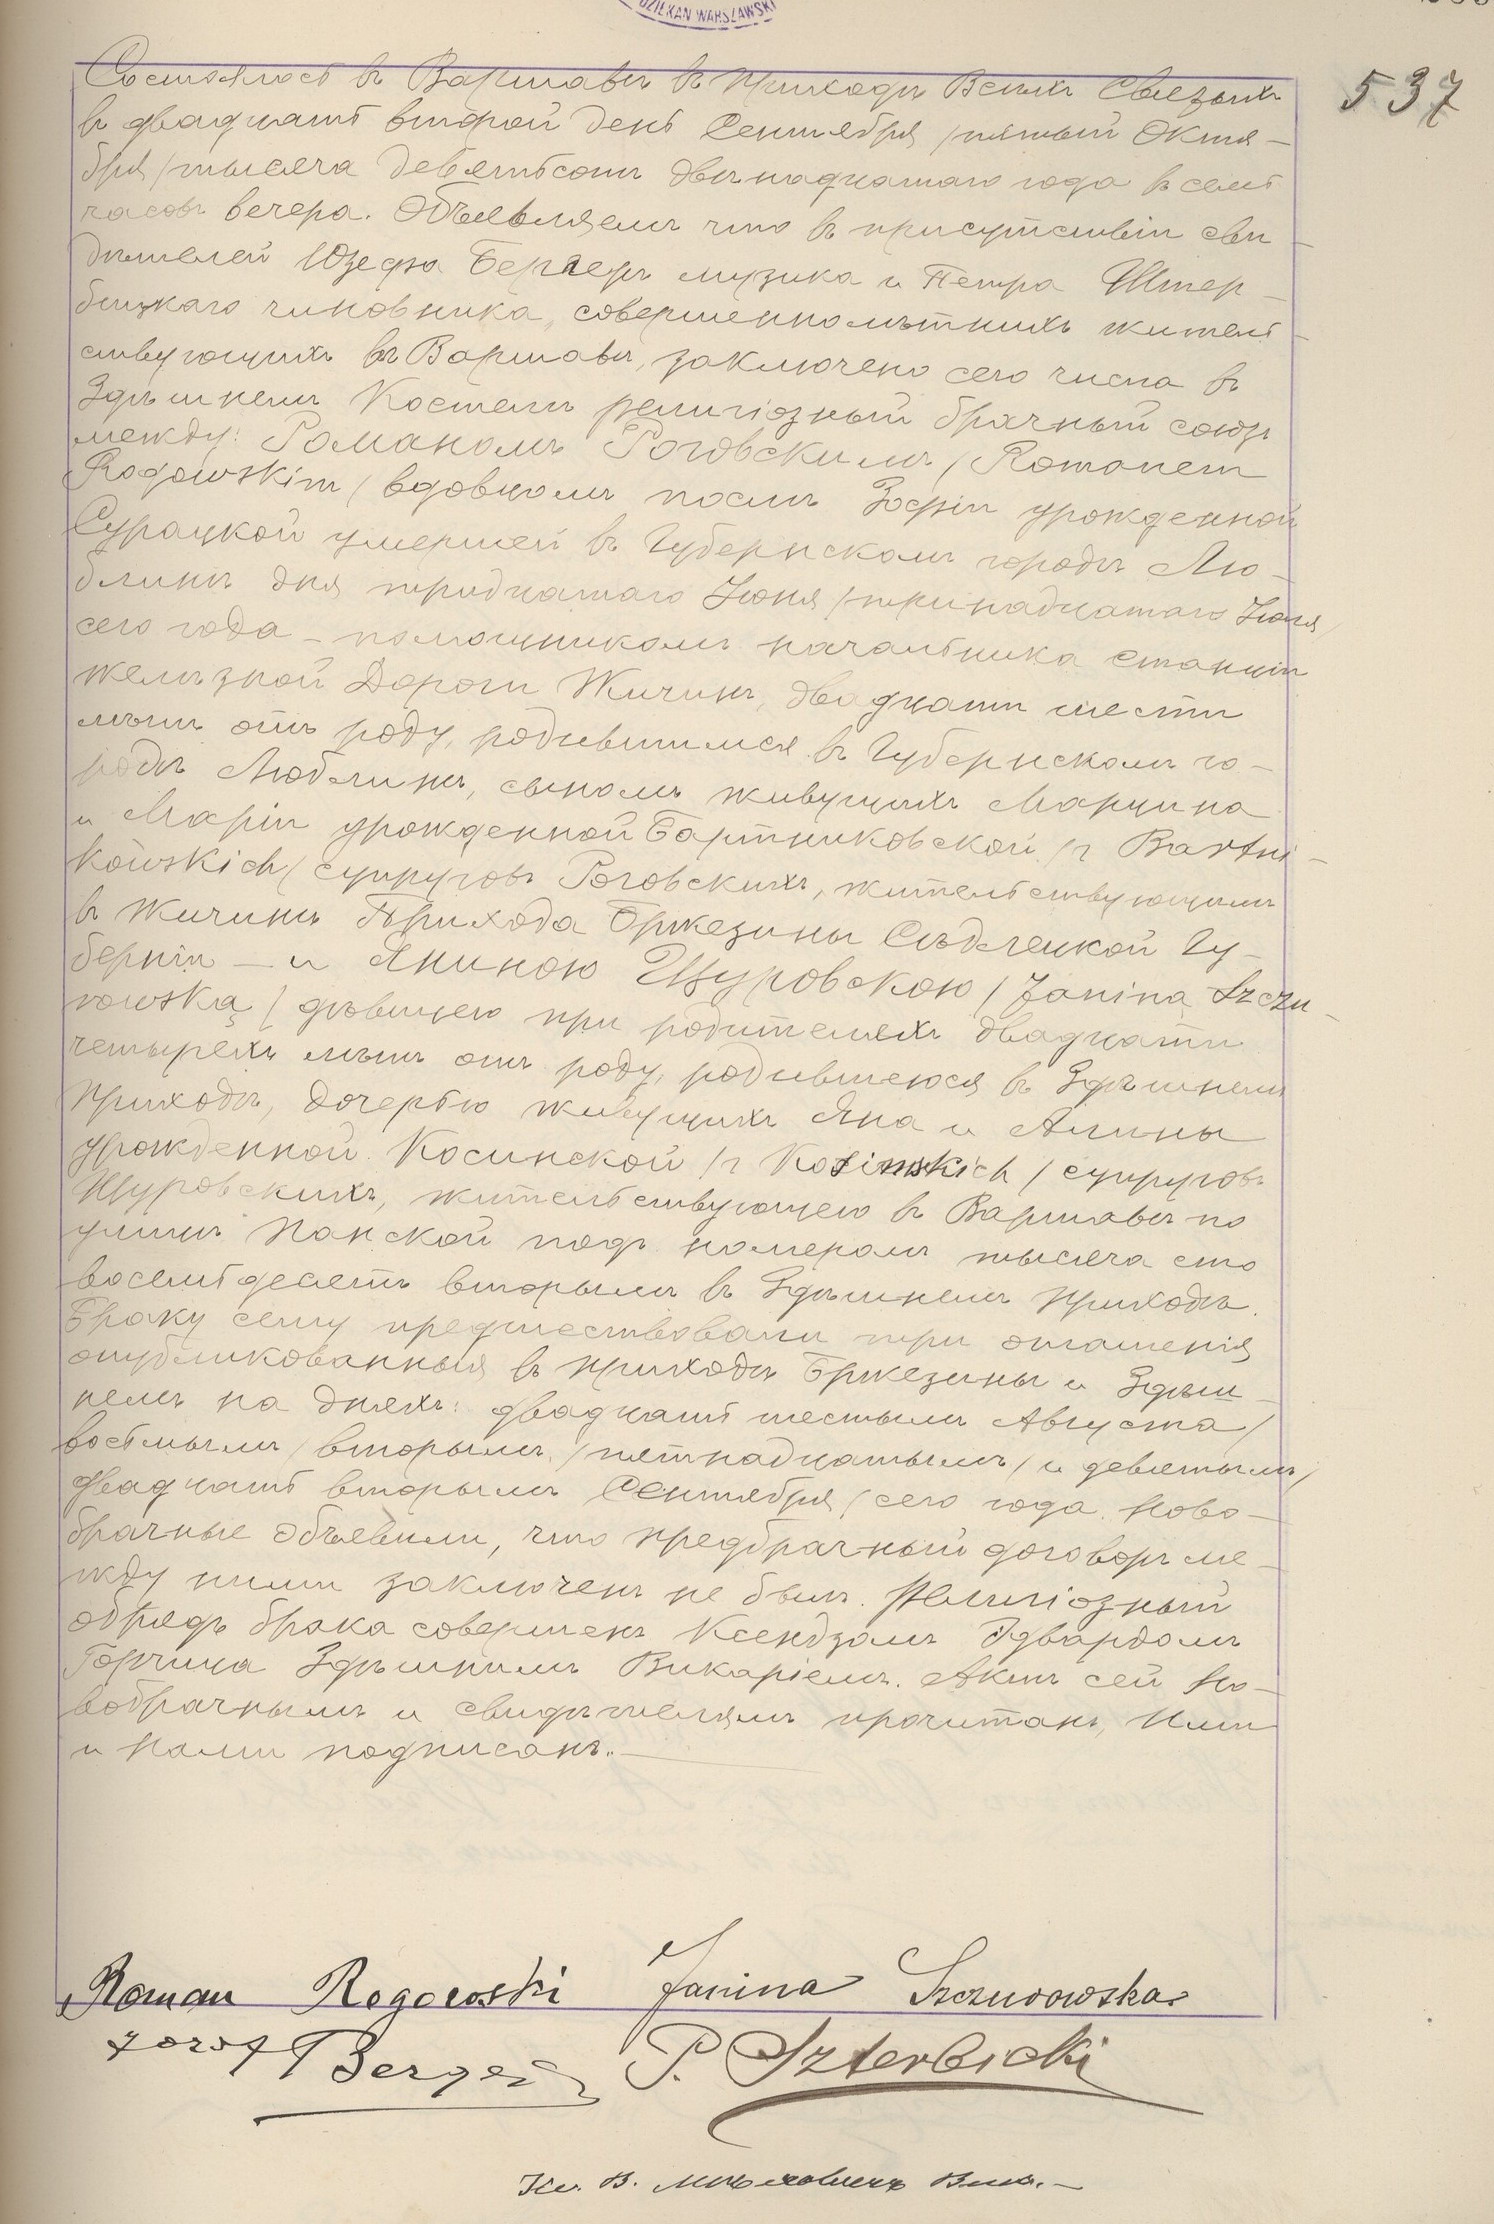 DZIEKAN WARSZAWSKI
537
Состоялось въ Варшавѣ въ приходѣ Всѣхъ Святыхъ
въ двадцать второй день Сентября /пятый Октя-
бря/ тысяча девятьсотъ двѣнадцатаго года въ семь
часовъ вечера. Объявляемъ что въ присутствіи сви-
дѣтелей Юзефа Бергеръ музика и Петра Штер-
бицкаго чиновника, совершеннолѣтнихъ житель-
ствующихъ въ Варшавѣ, заключено сего числа въ
здѣшнемъ Костелѣ религіозный брачный союзъ
между: Романомъ Роговскимъ /Romanem
Rogowskim/ вдовцомъ послѣ Зофіи урожденной
Сурацкой умершей въ Губернскомъ городѣ Лю-
блинѣ дня тридцатаго Іюня /тринадцатаго Іюля/
сего года - помощникомъ начальника станціи
желѣзной Дороги Жичинъ, двадцати шести
лѣтъ отъ роду, родившимся въ Губернскомъ го-
родѣ Люблинѣ, сыномъ живущихъ Марцина
и Маріи урожденной Бартниковской /z Bartni-
kowskich/ супруговъ Роговскихъ, жительствующимъ
въ Жичинѣ Прихода Бржезины Сѣдлецкой Гу-
берніи - и Яниною Щуровскою /Janiną Szczu-
rowską/ дѣвицею при родителяхъ двадцати
четырехъ лѣтъ отъ роду, родившеюся въ здѣшнемъ
приходѣ, дочерью живущихъ Яна и Алины
урожденной Косинской /z Kosinskich/ супруговъ
Щуровскихъ, жительствующею въ Варшавѣ по
улицѣ Панской подъ номеромъ тысяча сто
восемьдесятъ вторымъ въ здѣшнемъ приходѣ.
Браку сему предшествовали три оглашенія
опубликованныя въ приходѣ Бржезины и здѣш-
немъ на дняхъ: двадцать шестымъ Августа/
восьмымъ/ вторымъ, /пятнадцатымъ/ и девятымъ/
двадцать вторымъ Сентября/ сего года. Ново-
брачные объявили, что предбрачный договоръ ме-
жду ними заключенъ не былъ. Религіозный
обрядъ брака совершенъ Ксендзомъ Эдвардомъ
Горчица здѣшнимъ Викаріемъ. Актъ сей но-
вобрачнымъ и свидѣтелямъ прочитанъ, ими
и нами подписанъ.
Roman Rogowski Janina Szczurowska
Józef Berger P. Szterbicki
Кс. В.